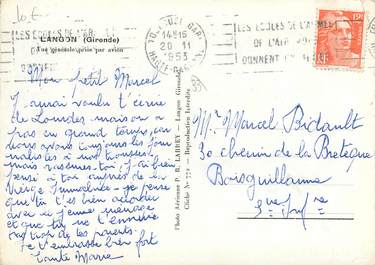 10 €
LANGON (Gironde)
Vue générale prise par avion
LES ÉCOLES DE L'
DONNENT
14H15
20-11
1953
LES ECOLES DE L'ARMEE
DE L'AIR
DONNENT
15F
RF
Mon petit Marcel
J'aurai voulu t'écrire
de Lourdes, mais on a
pas eu grand temps, car
nous avons toujours les jour
nalistes à nos trousses
mais rassures toi, j'ai bien
pensé à toi auprès de la
Vierge Immaculée - je pense
que tu t'es bien
avec le jeune ménage
et que tu ne t'ennuie
pas trop de tes parents.
Je t'embrasse bien fort
Tante Marie
Photo Aérienne P. R. LARREY - Langon (Gironde)
Cliché N° 772 - Reproduction Interdite
Mr Marcel Bidault
30 chemin de la Breteque
Boisguillaume
Sne Infre